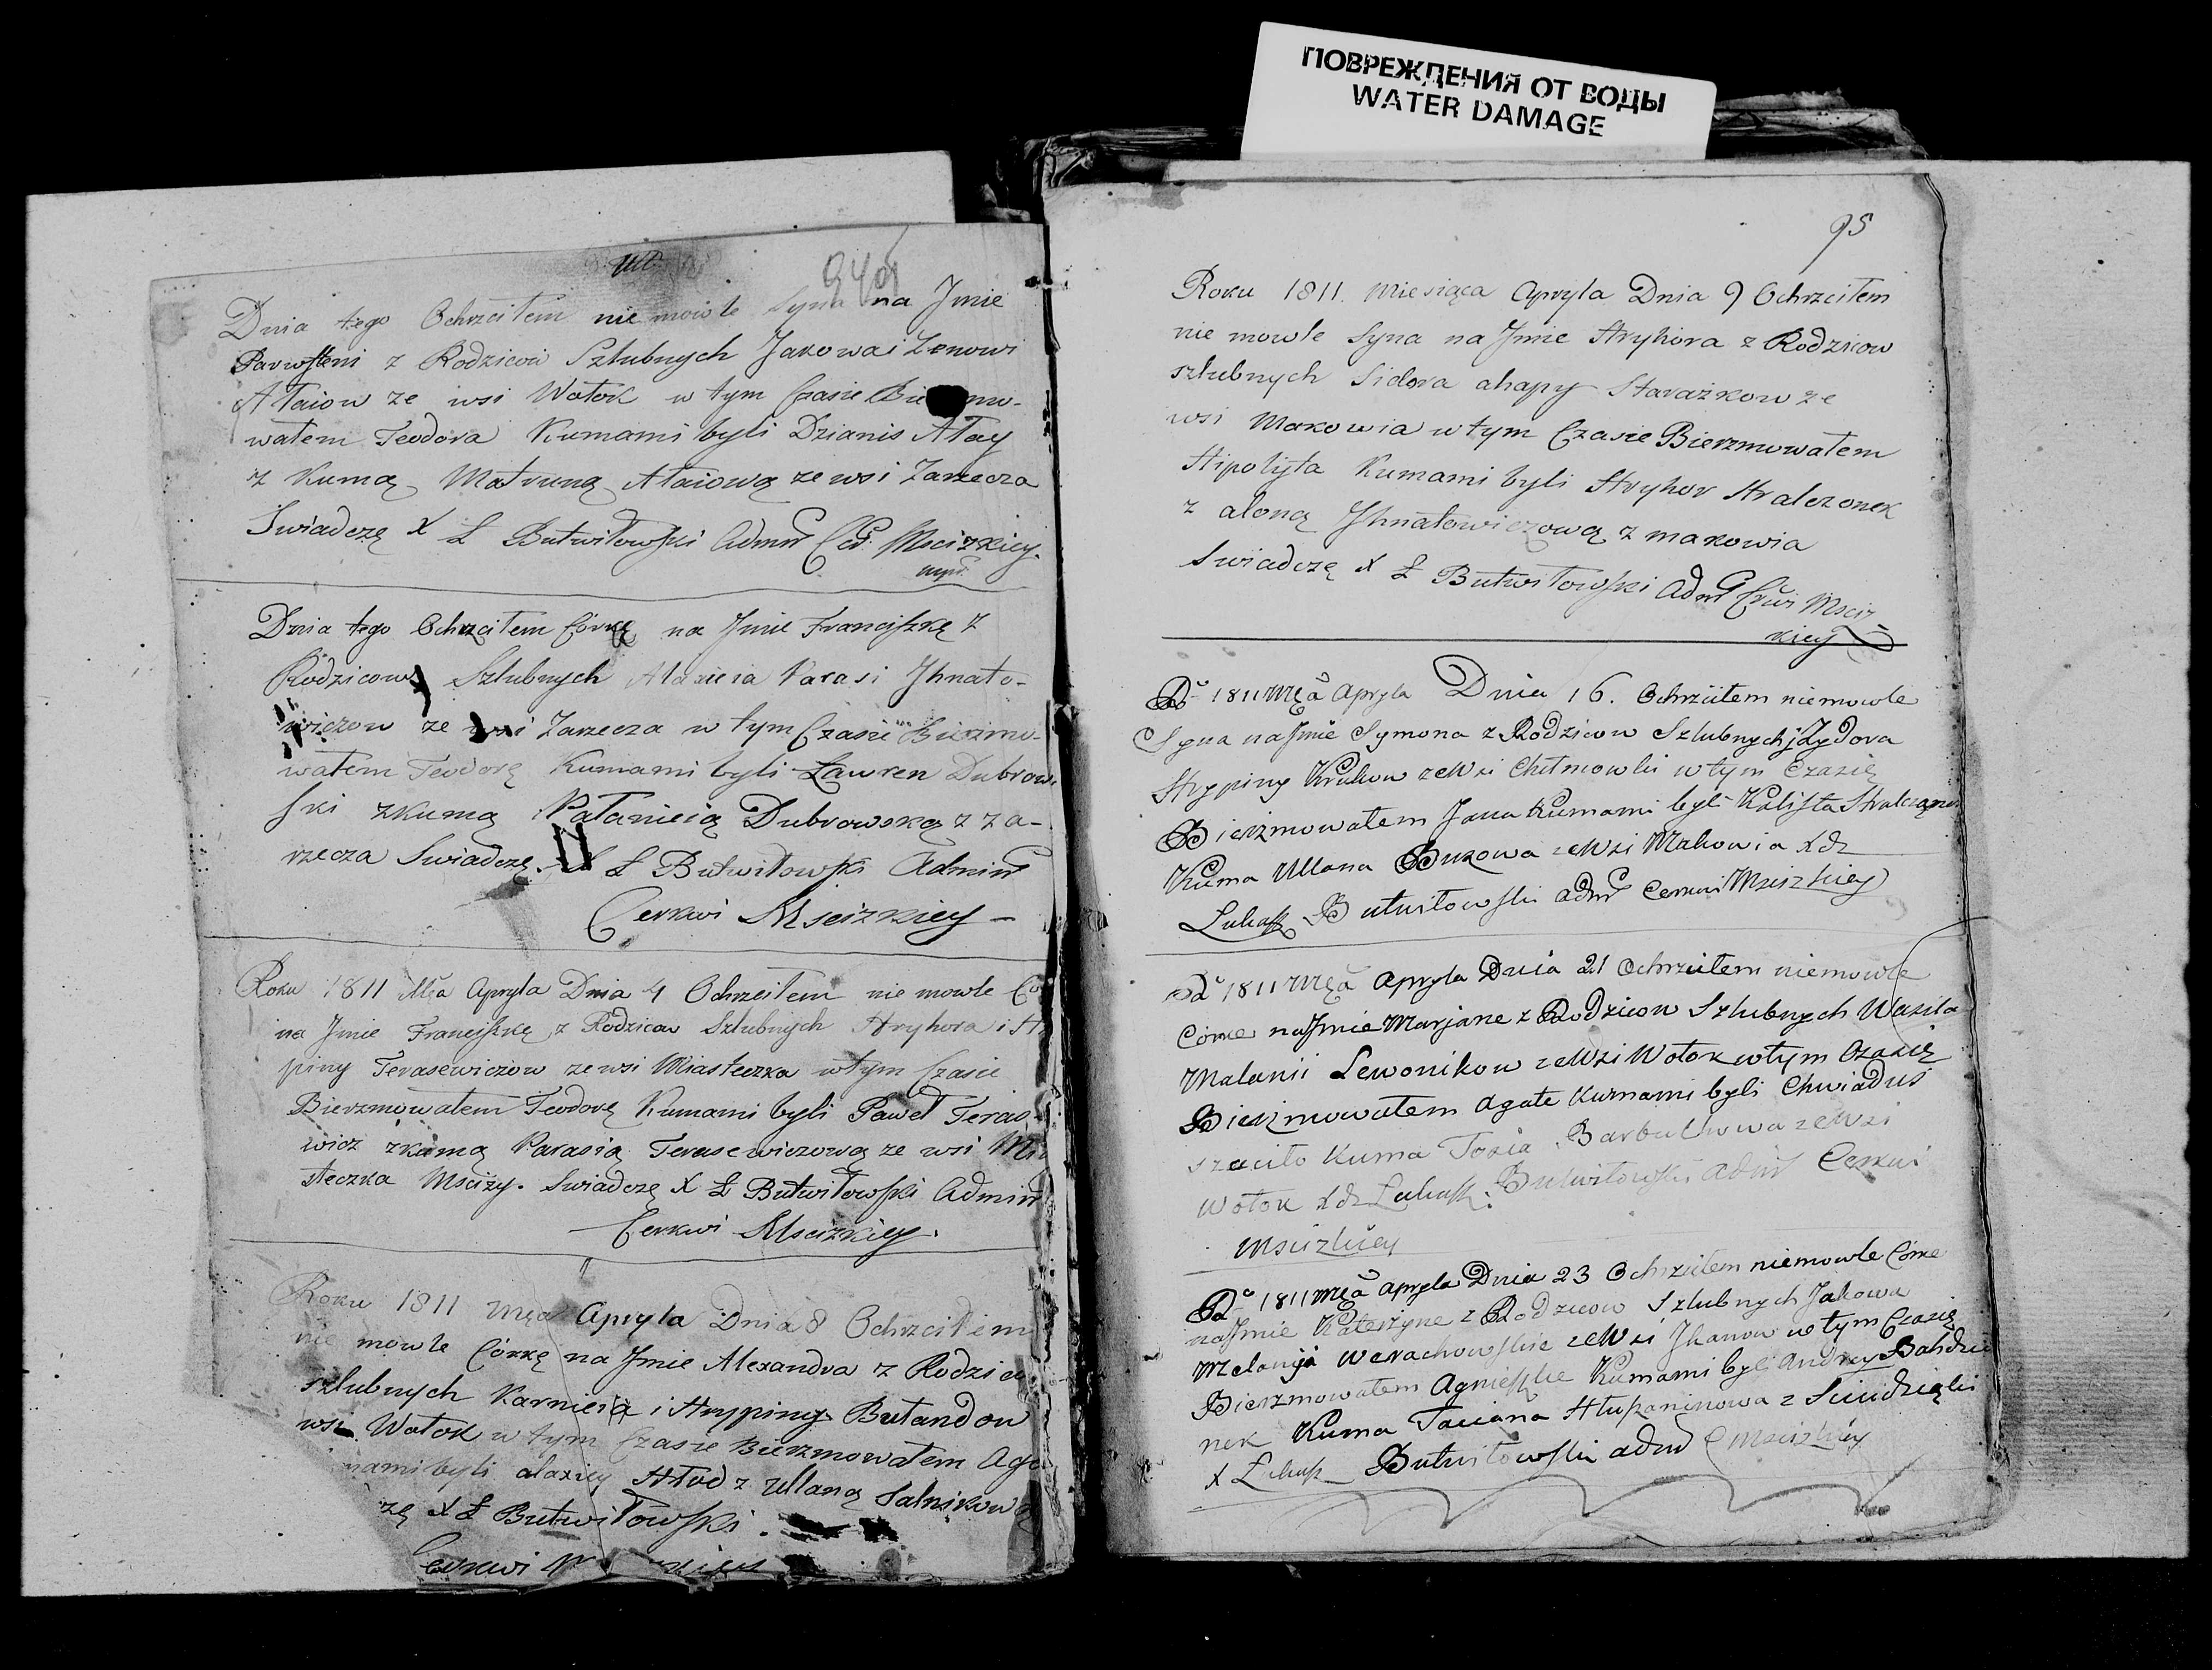 ПОВРЕЖДЕНИЯ ОТ ВОДЫ
WATER DAMAGE
Dnia tego Ochrzciłem niemowle Syna na Jmie
z Rodzicow Szlubnych Jakowa i Zenowi
Ałaiow ze wsi Wołok w tym Czasie
wałem Teodora Kumami byli Dzianis Ałay
z Kumą Matruną Ałaiową ze wsi Zarzecza
Swiadczę X Ł Butwiłowski Admr Mscizkiey
Dnia tego Ochrzciłem Córkę na Jmie Franciszkę z
Rodzicow Szlubnych Parasi Jhnato-
wiczow ze wsi Zarzecza w tym Czasie Bierzmo-
wałem Teodorę Kumami byli Ławren Dubrow
ski z kumą Pałanieią Dubrowską z Za-
rzecza Swiadczę X Ł Butwiłowski Admin
Cerkwi Mscizkiey
Roku 1811 Mca Apryla Dnia 4 Ochrzciłem nie mowle
na Jmie Franciszkę z Rodzicow Szlubnych Hryhora i
piny Terasewiczow ze wsi Miasteczka w tym Czasie
Bierzmowałem Teodorę Kumami byli Paweł Teras
wicz z kumą Parasią Terasewiczową ze wsi
steczka Mscizy. Swiadczę X Ł Butwiłowski Admin
Cerkwi Mscizkiey.
Roku 1811 Mca Apryla Dnia 8 Ochrzciłem
nie mowle Córkę na Jmie Alexandra z Rodzic
szlubnych Karnieia i Hrypiny Butandow
wsi Wołok w tym Czasie Bierzmowałem Aga
mami byli alaxiey Hłod z Ullaną Salnikow
zę X Ł Butwiłowski.
Cerkwi
95
Roku 1811 Miesiąca Apryla Dnia 9 Ochrzciłem
nie mowle Syna na Jmie Hryhora z Rodzicow
szlubnych Sidora ahapy Starażkow ze
wsi Makowia w tym Czasie Bierzmowałem
Hipolita Kumami byli Hryhor Hralczonek
z aloną Jhnatowiczową z makowia
Swiadczę X Ł Butwiłowski Admr Cerkwi Msciz
kiey
Rº 1811 Mcą Apryla Dnia 16. Ochrzciłem niemowle
Syna na Jmie Symona z Rodzicow Szlubnych Jzydora
Hrypiny Krukow ze Wsi Chełmowki w tym Czasię
Bierzmowałem Jana Kumami byli Kalista
Kuma Ullana Bukowa ze Wsi Makowia Xdz
Łukasz Butwiłowski admr Cerkwi Mscizkiey
Rº 1811 Mcą Apryla Dnia 21 Ochrzciłem niemowle
Córke na Jmie Marjane z Rodzicow Szlubnych Wasila
Malanii Lewonikow ze Wsi Wołok w tym Czasię
Bierzmowałem Agate Kumami byli Chwiaduś
Kuma Barbukowa ze Wsi
Wołok Xdz Łukasz Butwiłowski admr Cerkwi
Mscizkiey
Rº 1811 Mcą Apryla Dnia 23 Ochrzciłem niemowle Córke
na Jmie Katerzyne z Rodzicow Szlubnych Jakowa
Melanija Werachowskie ze Wsi Jkanow w tym Czasię
Bierzmowałem Agnieszke Kumami byli Andrey
nek Kuma Taciana z
X Łukasz Butwiłowski admr C Mscizkiey